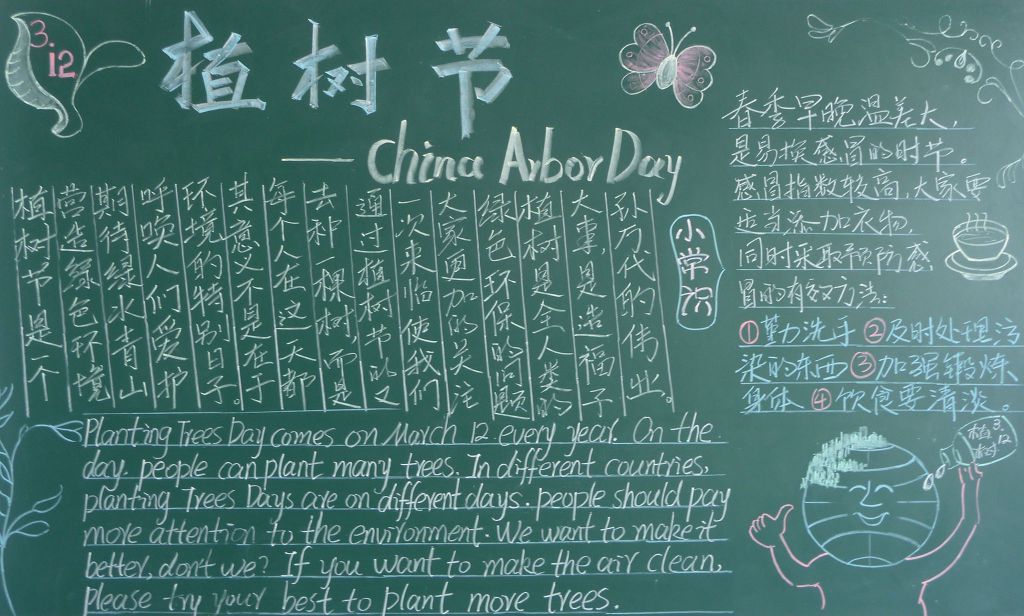 3.12
植树节
— China Arbor Day
植树节是一个
营造绿色环境
期待绿水青山
呼唤人们爱护
环境的特别日子。
其意义不是在于
每个人在这一天都
去种一棵树,而是
通过植树节的又
一次来临使我们
大家更加的关注
绿色环保的问题
植树是全人类的
大事,是造福子
孙万代的伟业。
Planting Trees Day comes on March 12 every year. On the
day. people can plant many trees. In different countries,
planting Trees Days are on different days. people should pay
more attention to the environment. We want to make it
better, don't we? If you want to make the air clean,
please try your best to plant more trees.
小常识
春季早晚温差大,
是易换感冒的时节。
感冒指数较高,大家要
注意添加衣物,
同时采取预防感
冒的有效方法:
①勤洗手 ②及时处理污
染的东西 ③加强锻炼
身体 ④饮食要清淡。
3.12
植树